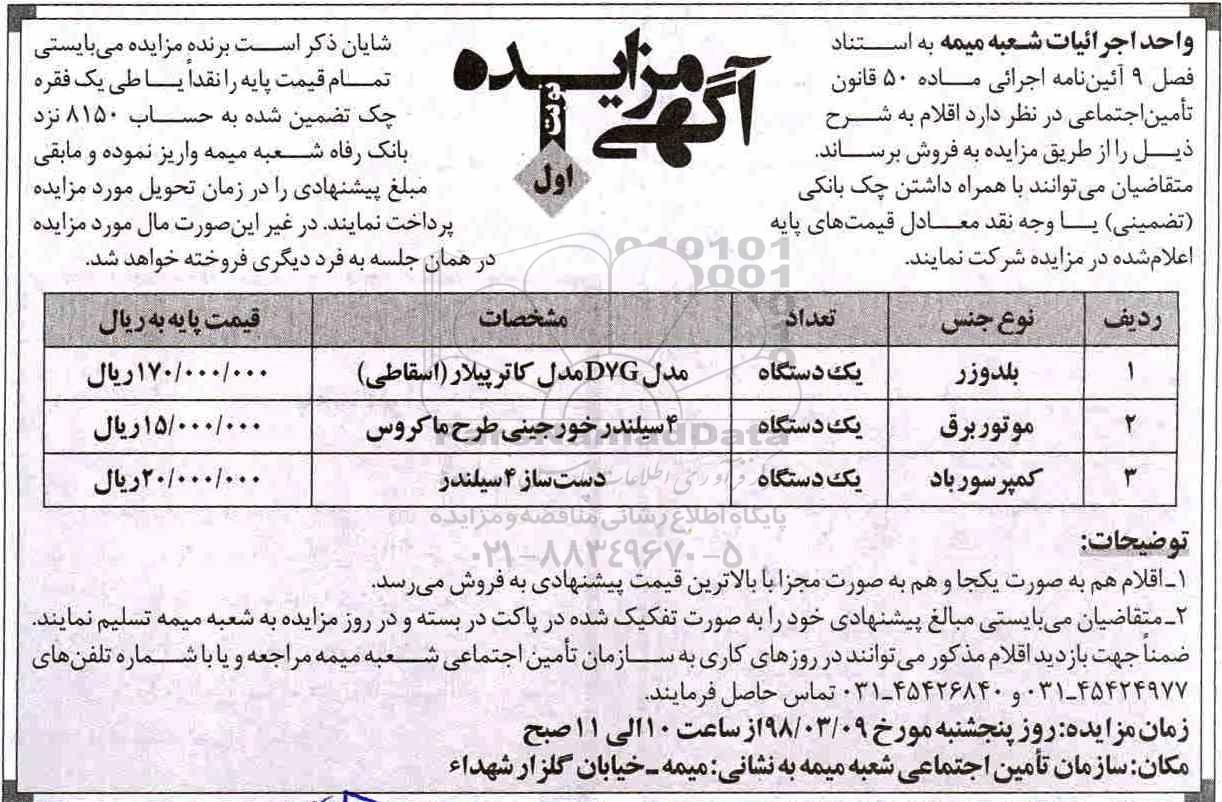 آگهی مزایده
نوبت
اول
واحد اجرائیات شعبه میمه به استناد
فصل ۹ آئین‌نامه اجرائی ماده ۵۰ قانون
تأمین‌اجتماعی در نظر دارد اقلام به شرح
ذیل را از طریق مزایده به فروش برساند.
متقاضیان می‌توانند با همراه داشتن چک بانکی
(تضمینی) یا وجه نقد معادل قیمت‌های پایه
اعلام‌شده در مزایده شرکت نمایند.
شایان ذکر است برنده مزایده می‌بایستی
تمام قیمت پایه را نقداً یا طی یک فقره
چک تضمین شده به حساب ۸۱۵۰ نزد
بانک رفاه شعبه میمه واریز نموده و مابقی
مبلغ پیشنهادی را در زمان تحویل مورد مزایده
پرداخت نمایند. در غیر این‌صورت مال مورد مزایده
در همان جلسه به فرد دیگری فروخته خواهد شد.
ردیف نوع جنس تعداد مشخصات قیمت پایه به ریال
۱ بلدوزر یک دستگاه مدل D۷G مدل کاترپیلار (اسقاطی) ۱۷۰/۰۰۰/۰۰۰ ریال
۲ موتور برق یک دستگاه ۴ سیلندر خورجینی طرح ماکروس ۱۵/۰۰۰/۰۰۰ ریال
۳ کمپرسور باد یک دستگاه دست‌ساز ۴ سیلندر ۲۰/۰۰۰/۰۰۰ ریال
پایگاه اطلاع رسانی مناقصه و مزایده
۰۲۱-۸۸۳۴۹۶۷۰-۵
توضیحات:
۱ـ اقلام هم به صورت یکجا و هم به صورت مجزا با بالاترین قیمت پیشنهادی به فروش می‌رسد.
۲ـ متقاضیان می‌بایستی مبالغ پیشنهادی خود را به صورت تفکیک شده در پاکت در بسته و در روز مزایده به شعبه میمه تسلیم نمایند.
ضمناً جهت بازدید اقلام مذکور می‌توانند در روزهای کاری به سازمان تأمین اجتماعی شعبه میمه مراجعه و یا با شماره تلفن‌های
۰۳۱ـ۴۵۴۲۴۹۷۷ و ۰۳۱ـ۴۵۴۲۶۸۴۰ تماس حاصل فرمایند.
زمان مزایده: روز پنجشنبه مورخ ۹۸/۰۳/۰۹ از ساعت ۱۰ الی ۱۱ صبح
مکان: سازمان تأمین اجتماعی شعبه میمه به نشانی: میمه ـ خیابان گلزار شهداء